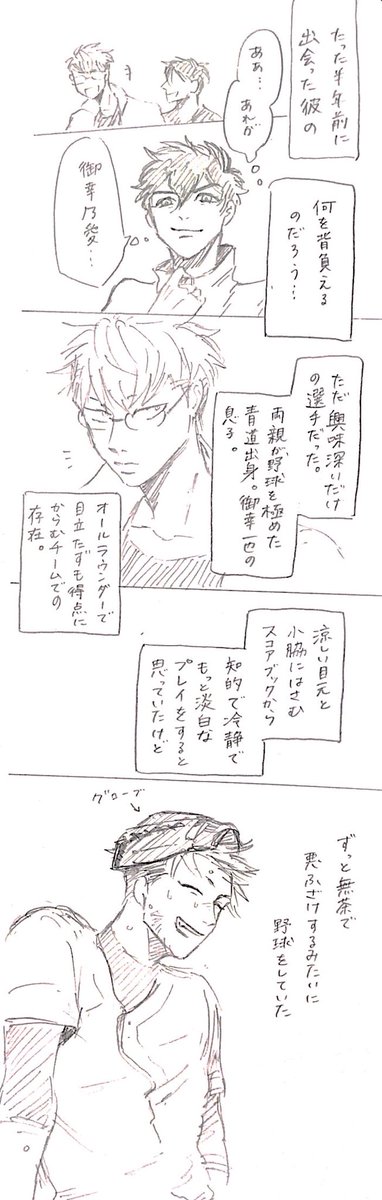 たった半年前に
出会った彼の
ああ…
あれが
御幸乃愛…
何を背負える
のだろう…
ただ興味深いだけ
の選手だった。
両親が野球を極めた
青道出身。御幸一也の
息子。
オールラウンダーで
目立たずも得点に
からむチームでの
存在。
涼しい目元と
小脇にはさむ
スコアブックから
知的で冷静で
もっと淡白な
プレイをすると
思っていたけど
グローブ
ずっと無茶で
悪ふざけするみたいに
野球をしていた